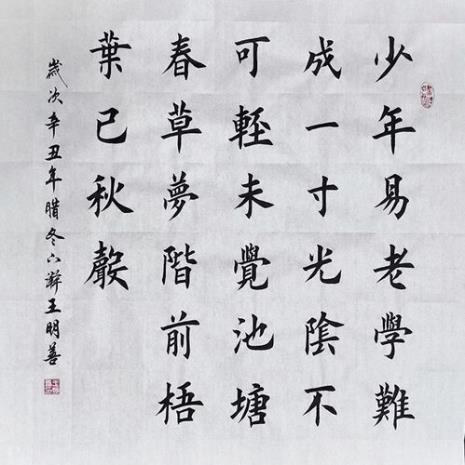 少年易老學難
成一寸光陰不
可輕未覺池塘
春草夢階前梧
葉已秋聲
嵗次辛丑年腊冬王明善